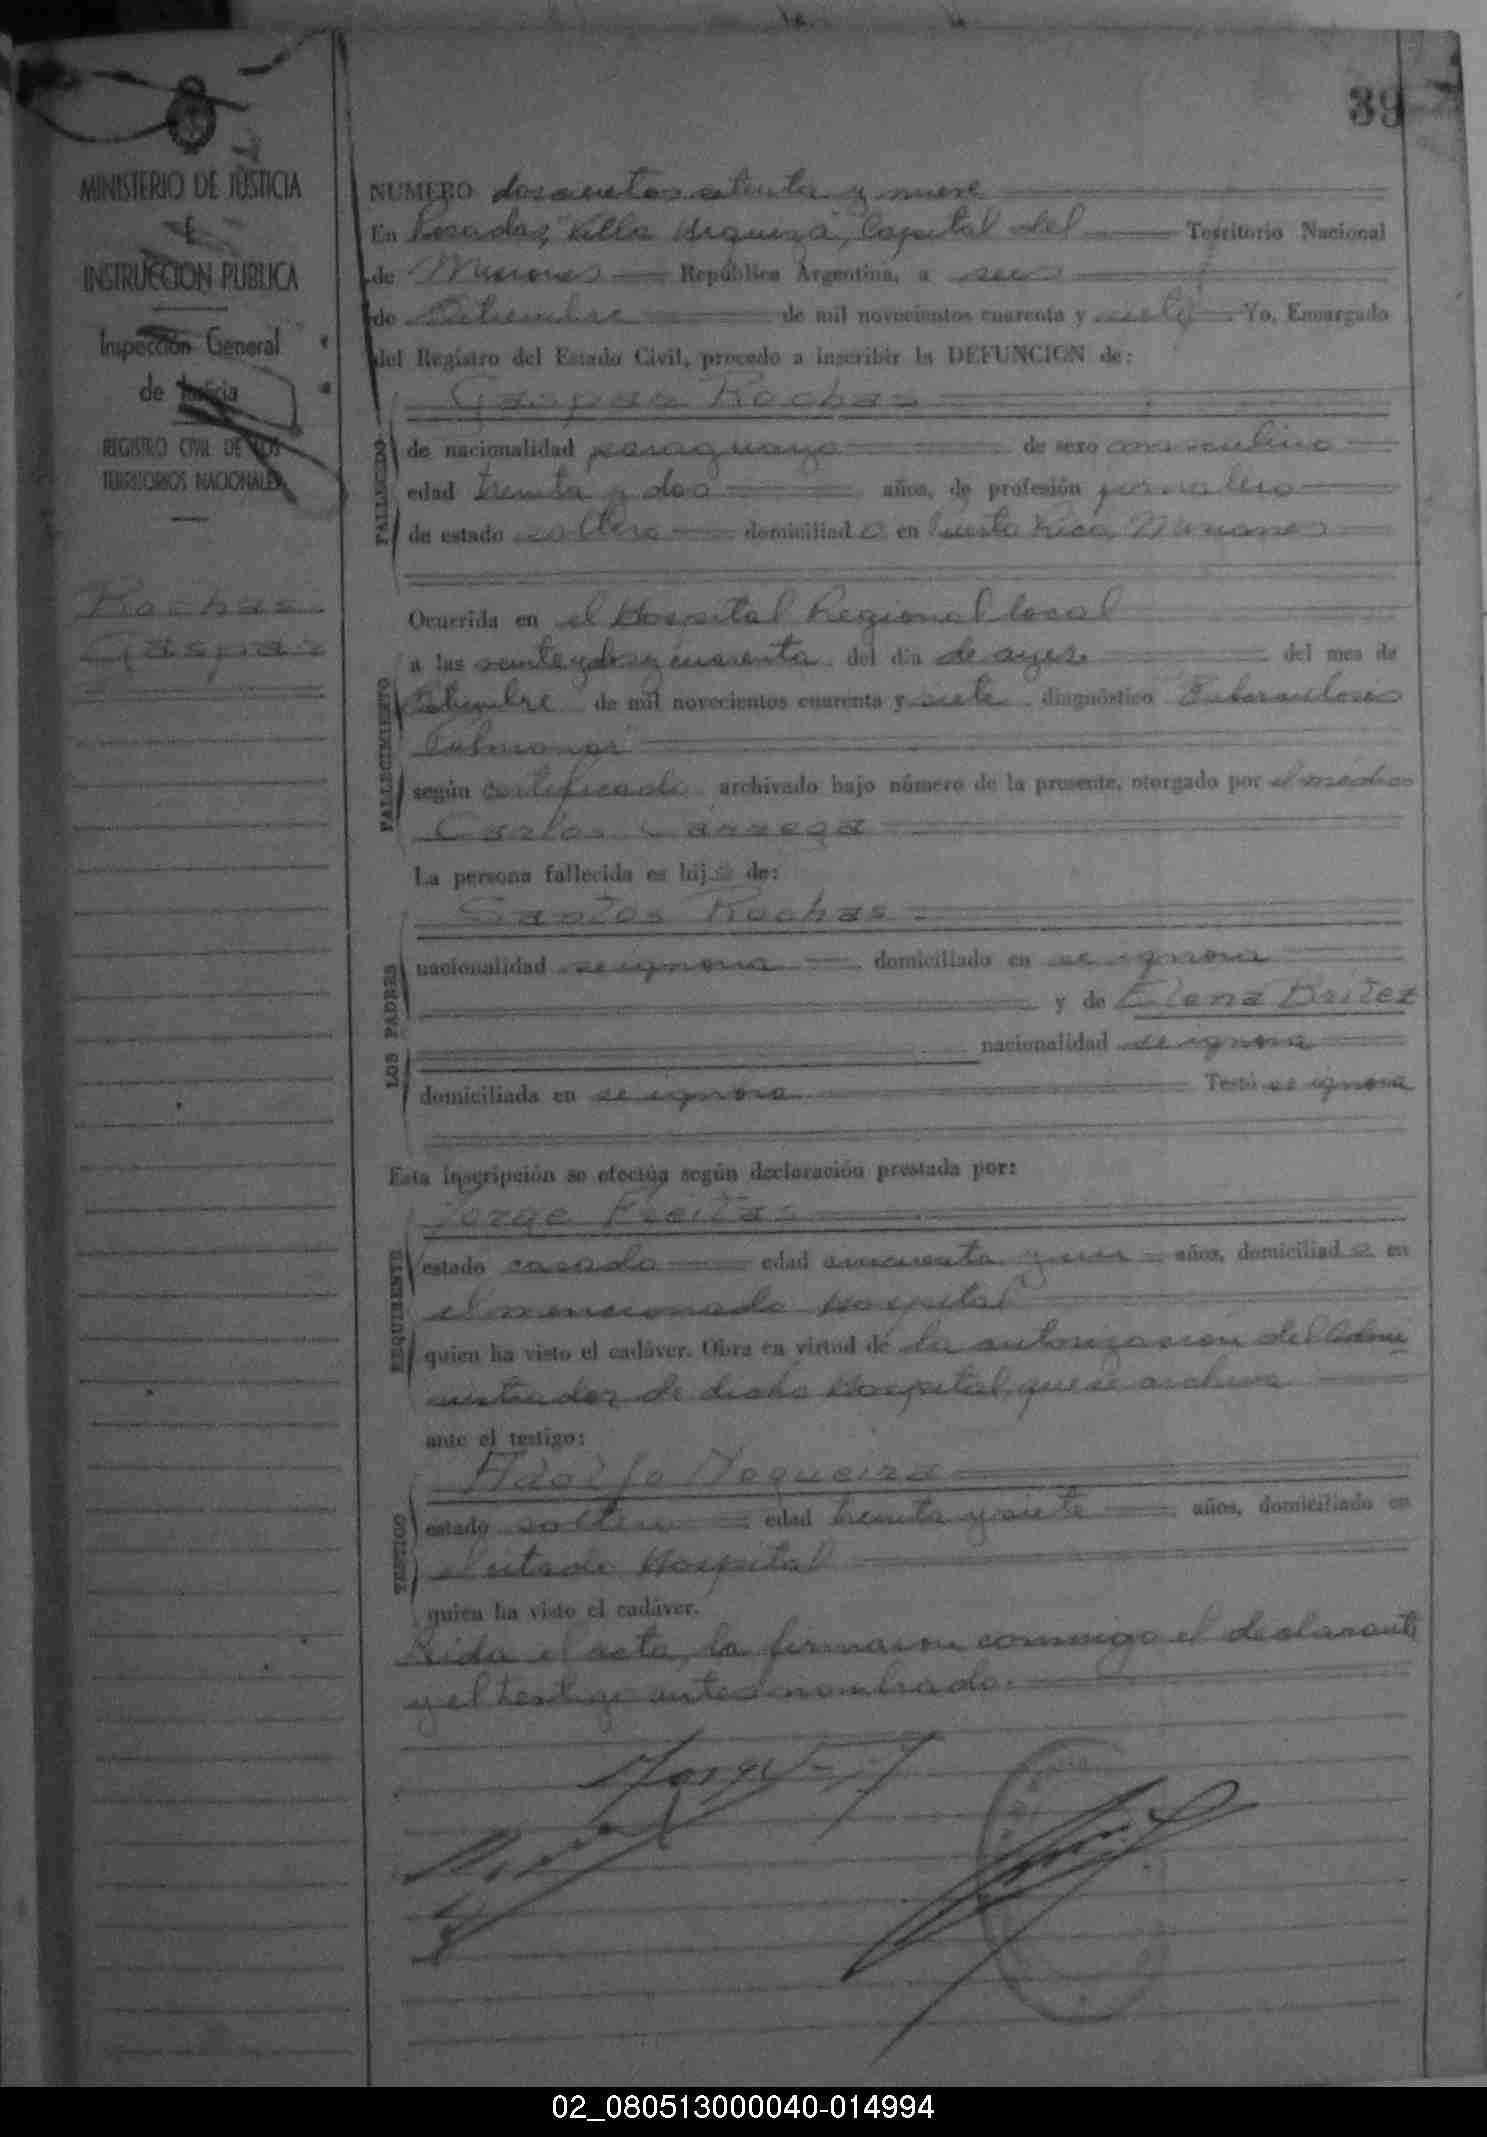 39
MINISTERIO DE JUSTICIA
E
INSTRUCCION PUBLICA
Inspección General
de Justicia
REGISTRO CIVIL DE LOS
TERRITORIOS NACIONALES
Rochas
Gaspar
NUMERO doscientos setenta y nueve
En Posadas, "Villa Urquiza", Capital del Territorio Nacional
de Misiones República Argentina, a seis
de Setiembre de mil novecientos cuarenta y siete Yo, Encargado
del Registro del Estado Civil, procedo a inscribir la DEFUNCION de:
Gaspar Rochas
FALLECIDO
de nacionalidad paraguayo de sexo masculino
edad treinta y dos años, de profesión jornalero
de estado soltero domiciliado en Puerto Rico, Misiones
FALLECIMIENTO
Ocurrida en el Hospital Regional local
a las veinte y dos y cuarenta del día de ayer del mes de
Setiembre de mil novecientos cuarenta y siete diagnóstico Tuberculosis
Pulmonar
según certificado archivado bajo número de la presente, otorgado por el médico
Carlos Carrega
La persona fallecida es hijo de:
LOS PADRES
Santos Rochas
nacionalidad se ignora domiciliado en se ignora
y de Elena Britez
nacionalidad se ignora
domiciliada en se ignora Testó se ignora
Esta inscripción se efectúa según declaración prestada por:
REQUIRENTE
Jorge Freitas
estado casado edad cincuenta y un años, domiciliado en
el mencionado Hospital
quien ha visto el cadáver. Obra en virtud de la autorización del Admi
nistrador de dicho Hospital, que se archiva
ante el testigo:
TESTIGO
Adolfo Nogueira
estado soltero edad treinta y siete años, domiciliado en
el citado Hospital
quien ha visto el cadáver.
Leída el acta, la firmaron conmigo el declarante
y el testigo antes nombrado.
02_080513000040-014994